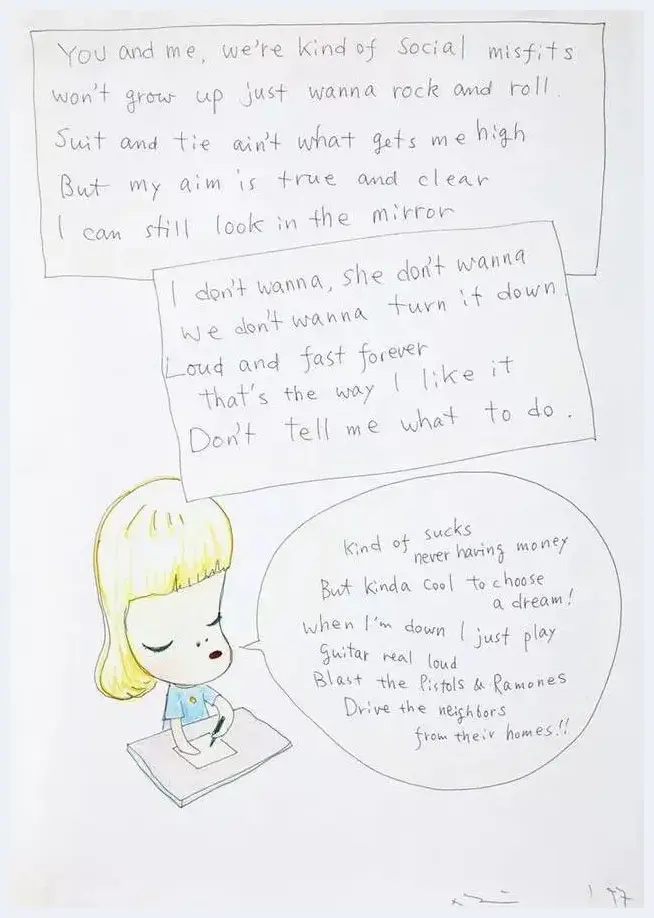 You and me, we're kind of social misfits
won't grow up just wanna rock and roll.
Suit and tie ain't what gets me high
But my aim is true and clear
I can still look in the mirror
I don't wanna, she don't wanna
we don't wanna turn it down.
Loud and fast forever
that's the way I like it
Don't tell me what to do.
Kind of sucks
never having money
But kinda cool to choose
a dream!
when I'm down I just play
guitar real loud
Blast the Pistols & Ramones
Drive the neighbors
from their homes!!